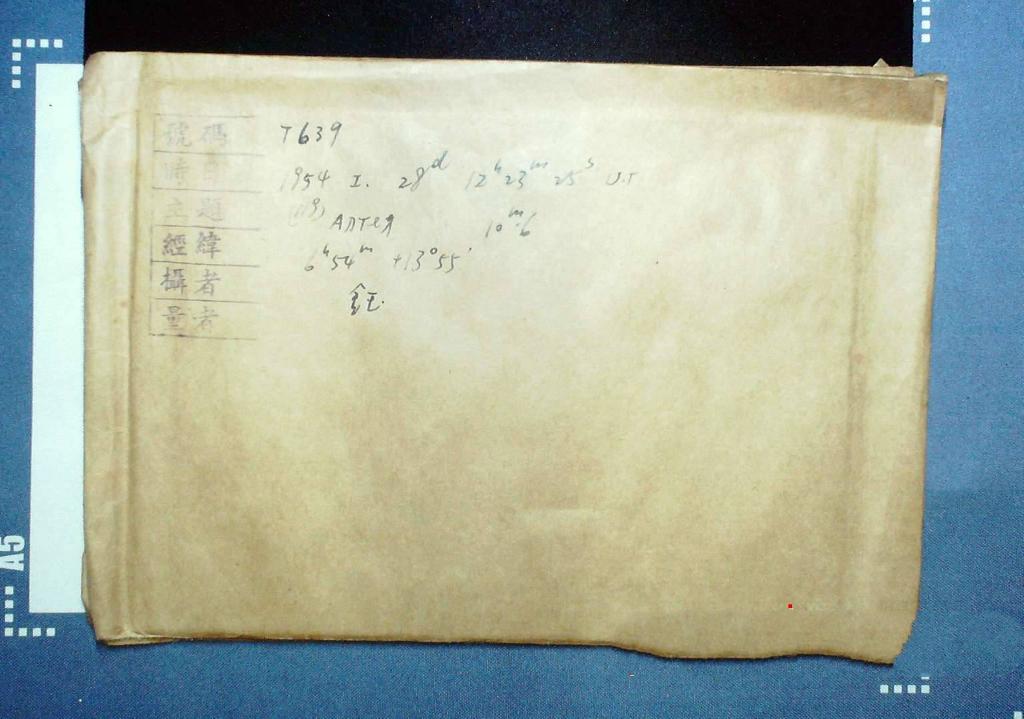 號碼 T639
時間 1954 I. 28ᵈ 12ʰ23ᵐ25ˢ U.T
主題 (119) Алтея 10ᵐ.6
經緯 6ʰ54ᵐ +13°55'
攝者 鈺.
量者
A5